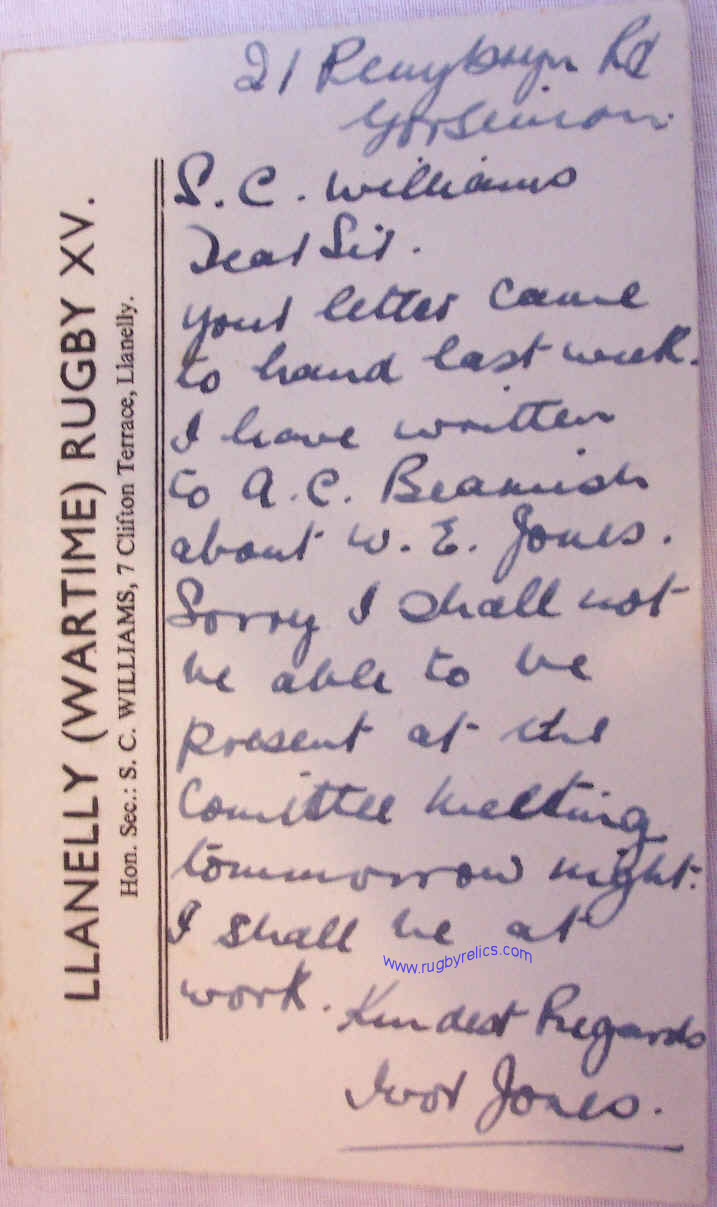 LLANELLY (WARTIME) RUGBY XV.
Hon. Sec.: S. C. WILLIAMS, 7 Clifton Terrace, Llanelly.
21 Penybryn Rd
Gorseinon.
S. C. Williams
Dear Sir.
Your letter came
to hand last week.
I have written
to A. C. Beamish
about W. E. Jones.
Sorry I shall not
be able to be
present at the
Comittee Meeting
tommorrow night.
I shall be at
work. Kindest Regards
Ivor Jones.
www.rugbyrelics.com